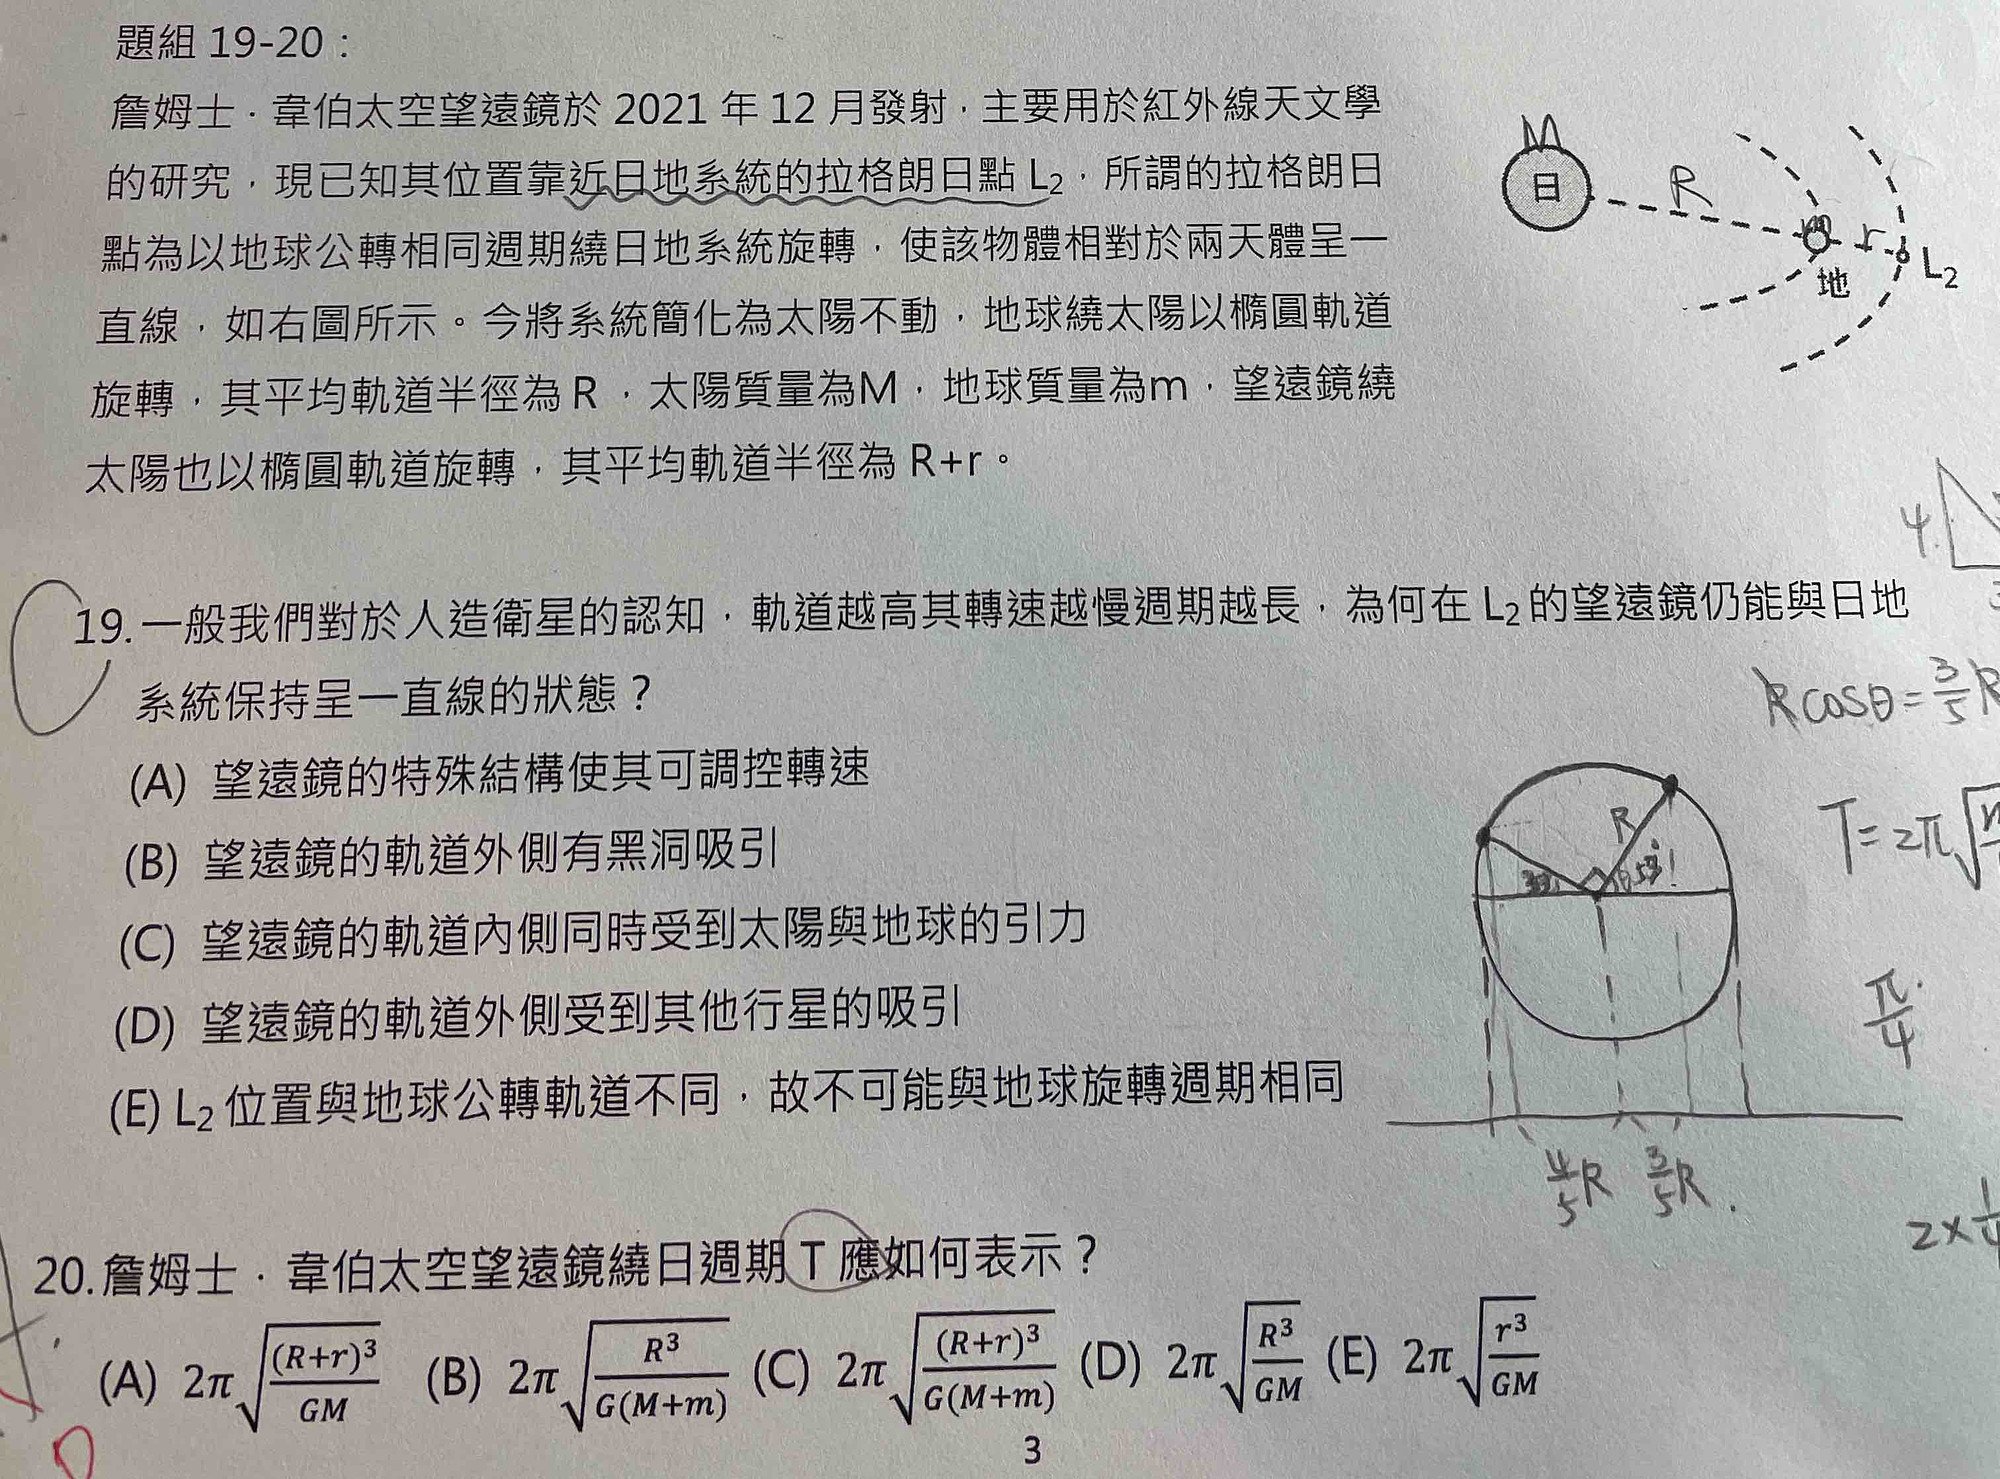 題組 19-20：
詹姆士．韋伯太空望遠鏡於 2021 年 12 月發射，主要用於紅外線天文學
的研究，現已知其位置靠近日地系統的拉格朗日點 L₂，所謂的拉格朗日
點為以地球公轉相同週期繞日地系統旋轉，使該物體相對於兩天體呈一
直線，如右圖所示。今將系統簡化為太陽不動，地球繞太陽以橢圓軌道
旋轉，其平均軌道半徑為 R ，太陽質量為M，地球質量為m，望遠鏡繞
太陽也以橢圓軌道旋轉，其平均軌道半徑為 R+r。
M
日
R
m
r
地
L₂
4
3
19.一般我們對於人造衛星的認知，軌道越高其轉速越慢週期越長，為何在 L₂ 的望遠鏡仍能與日地
系統保持呈一直線的狀態？
(A) 望遠鏡的特殊結構使其可調控轉速
(B) 望遠鏡的軌道外側有黑洞吸引
(C) 望遠鏡的軌道內側同時受到太陽與地球的引力
(D) 望遠鏡的軌道外側受到其他行星的吸引
(E) L₂ 位置與地球公轉軌道不同，故不可能與地球旋轉週期相同
Rcosθ=3/5R
T=2π√
R
53°
π/4
4/5R 3/5R
2×1/4
20.詹姆士．韋伯太空望遠鏡繞日週期 T 應如何表示？
(A) 2π√((R+r)³/GM) (B) 2π√(R³/G(M+m)) (C) 2π√((R+r)³/G(M+m)) (D) 2π√(R³/GM) (E) 2π√(r³/GM)
3